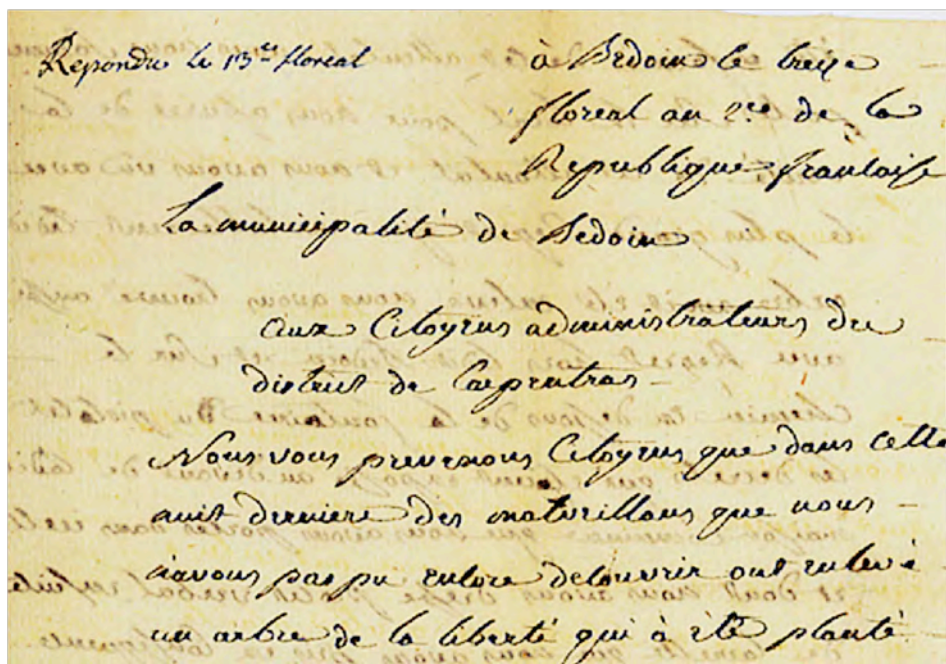 Repondu le 13me floreal
à Bedoin le treize
floreal an 2me de la
Republique francaise
La municipalité de Bedoin
aux Citoyens administrateurs du
district de Carpentras
Nous vous prevenons Citoyens que dans cette
nuit derniere des malveillans que nous
n'avons pas pu encore decouvrir ont enlevé
un arbre de la liberté qui à été planté